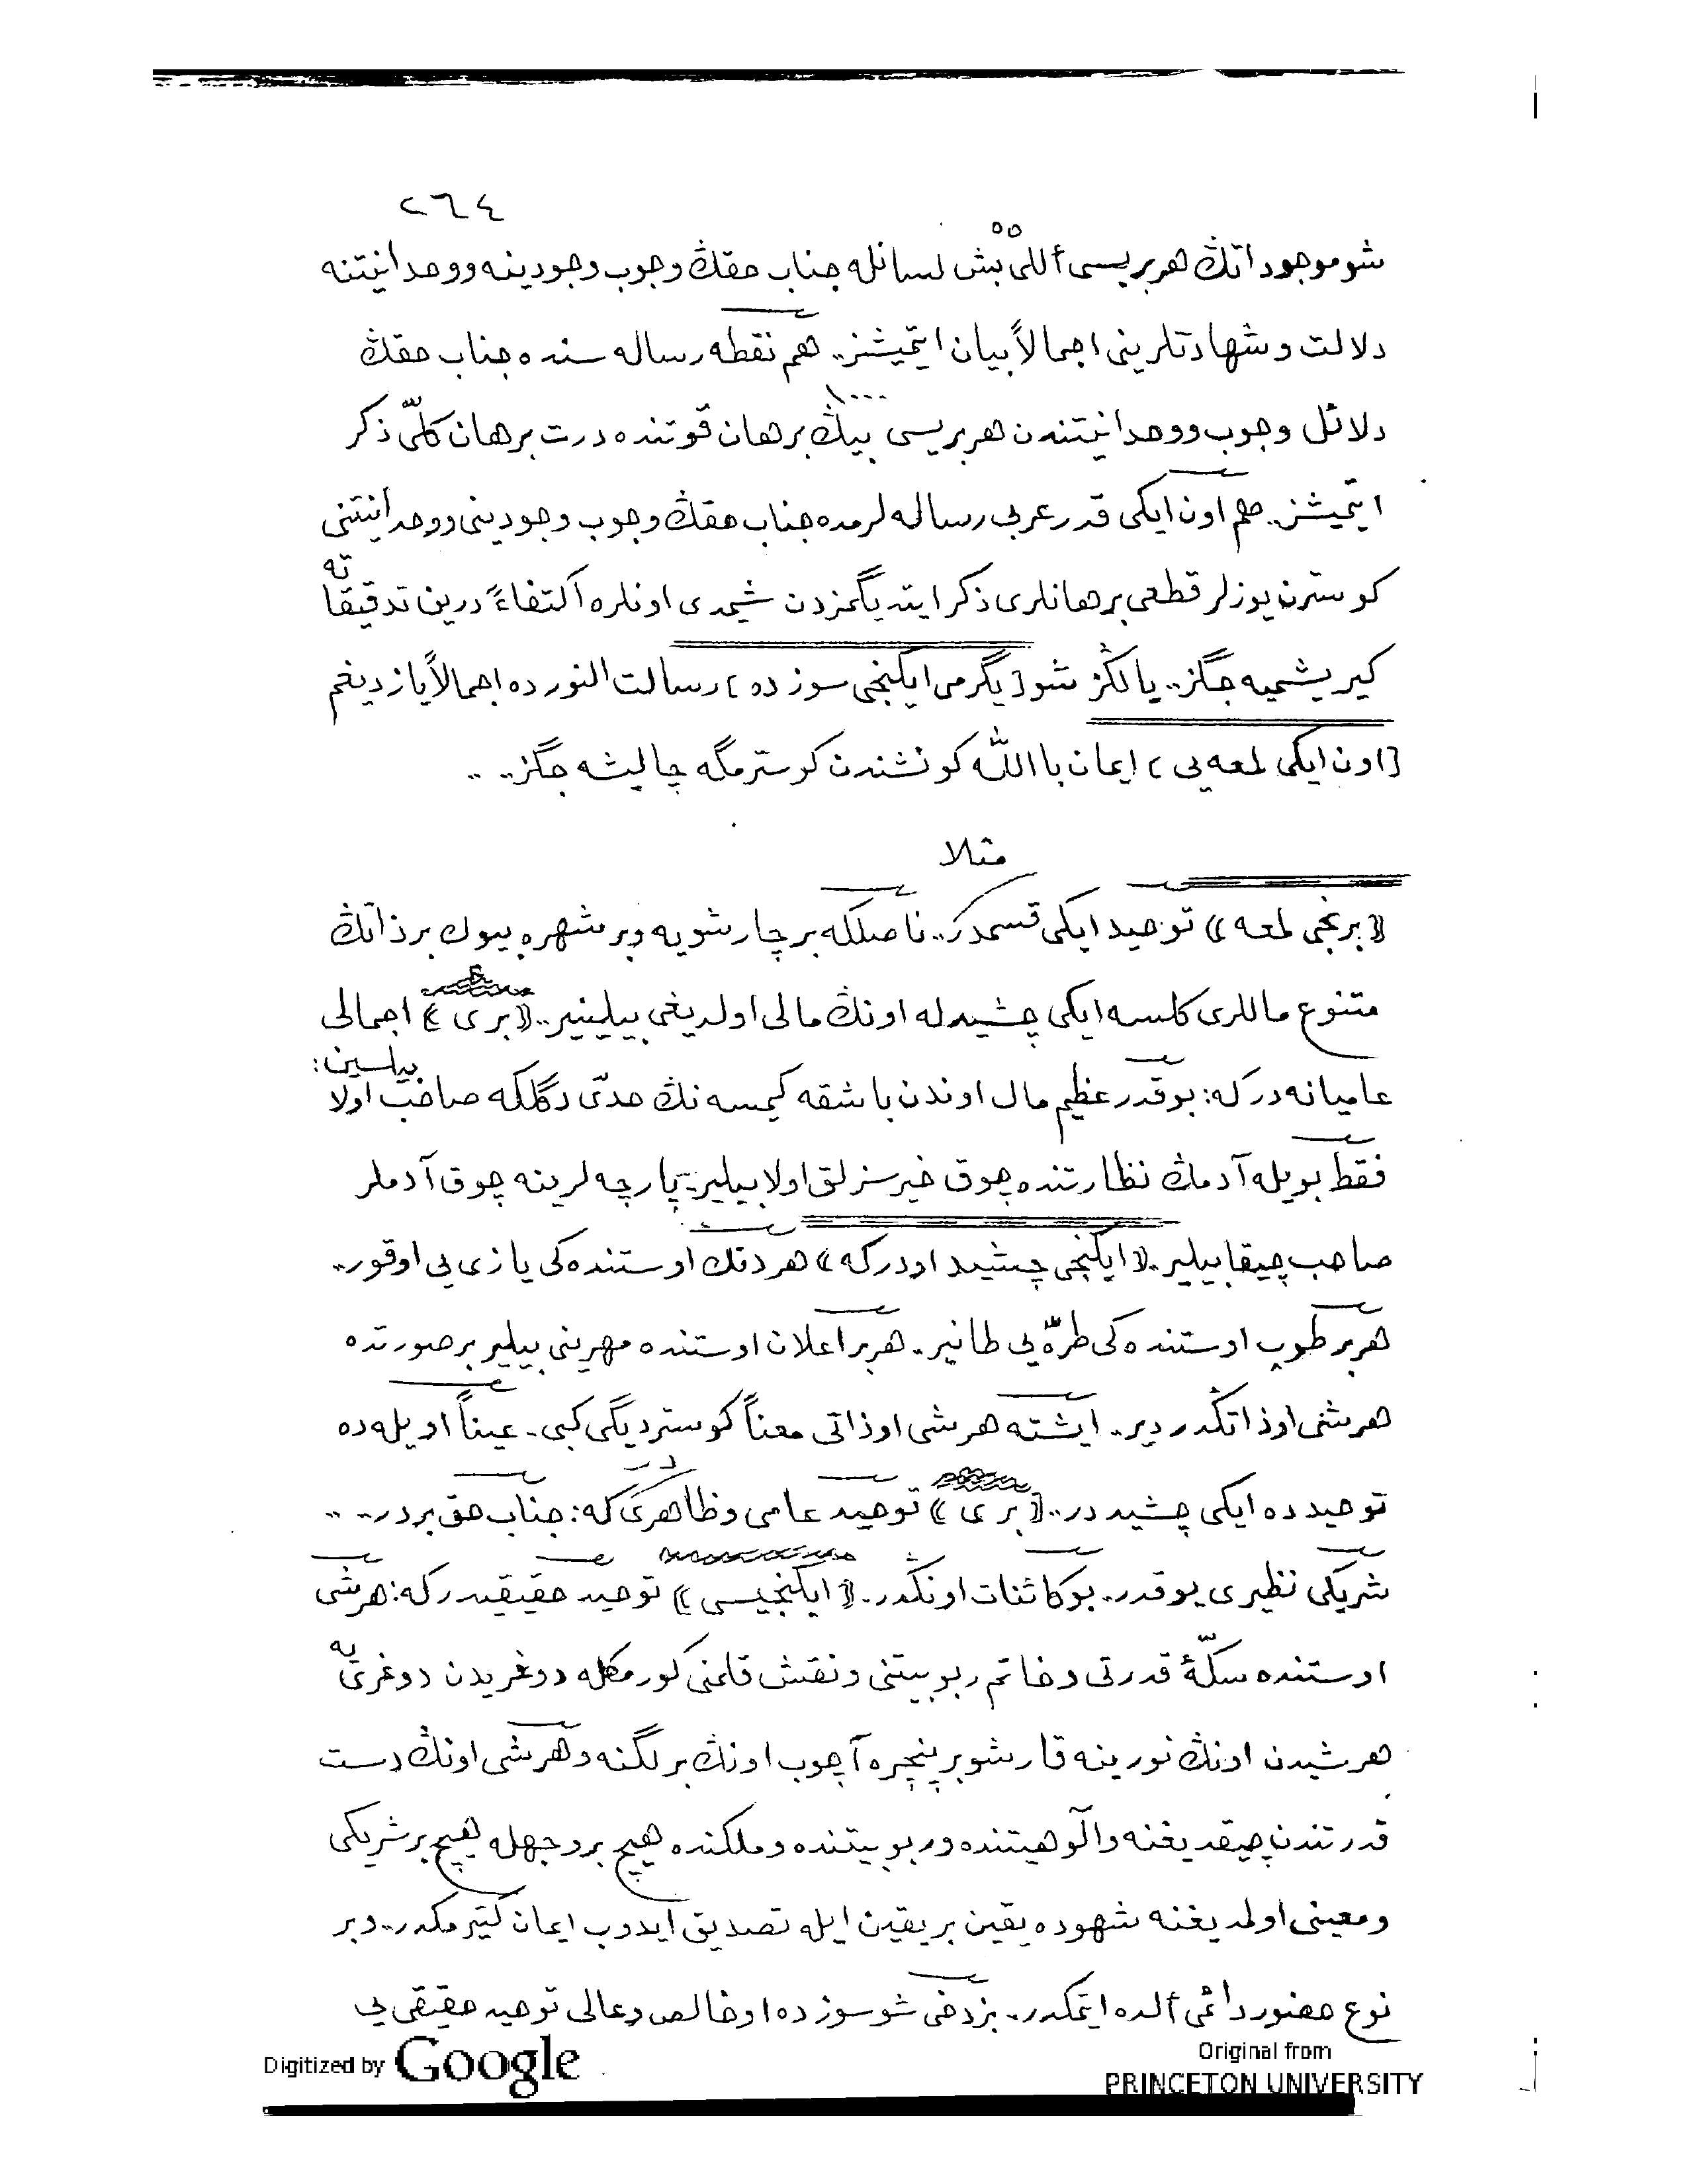 ٢٦٤
شو موجوداتڭ هر بریسی أللی بش ٥٥ لسانله جناب حقڭ وجوب وجودینه و وحدانیتنه
دلالت و شهادتلرینی اجمالاً بیان ایتمیشز.. هم نقطه رساله سنده جناب حقڭ
دلائل وجوب و وحدانیتندن هر بریسی بیڭ ١٠٠٠ برهان قوتنده درت برهان کلّی ذکر
ایتمیشز.. هم اون ایکی قدر عربی رساله لرمده جناب حقڭ وجوب وجودینی و وحدانیتنی
کوسترن یوزلر قطعی برهانلری ذکر ایتدیگمزدن شیمدی اونلره اکتفاءً درین تدقیقاته
کیریشمیه جگز.. یالڭز شو [یگرمی ایکنجی سوزده] رسالت النورده اجمالاً یازدیغم
[اون ایکی لمعه یی] ایمان باالله کونشندن کوسترمگه چالیشه جگز.. ..
مثلا
⟪برنجی لمعه⟫ توحید ایکی قسمدر.. ناصلکه بر چارشویه و بر شهره بیوك بر ذاتڭ
متنوع ماللری کلسه ایکی چشیدله اونڭ مالی اولدیغی بیلینیر.. ⟪بری⟫ اجمالی
عامیانه درکه: بوقدر عظیم مال اوندن باشقه کیمسه نڭ حدّی دگلکه صاحب اولا بیلسین:
فقط بویله آدمڭ نظارتنده چوق خیرسزلق اولا بیلیر.. پارچه لرینه چوق آدملر
صاحب چیقابیلیر.. ⟪ایکنجی چشید اودرکه⟫ هر دنك اوستنده کی یازی یی اوقور..
هر بر طوپ اوستنده کی طرّه یی طانیر.. هر بر اعلان اوستنده مهرینی بیلیر بر صورتده
هر شی او ذاتڭدر دیر.. ایشته هر شی او ذاتی معناً کوستردیگی کبی.. عیناً اویله ده
توحید ده ایکی چشیددر.. ⟪بری⟫ توحید عامی و ظاهریدرکه: جناب حق بردر.. ..
شریکی نظیری یوقدر.. بو کائنات اونڭدر.. ⟪ایکنجیسی⟫ توحید حقیقیدرکه: هر شی
اوستنده سکّهٔ قدرتی و خاتم ربوبیتنی و نقش قلمنی کورمکله دوغریدن دوغری یه
هر شیدن اونڭ نورینه قارشو بر پنچره آچوب اونڭ برلگنه و هر شی اونڭ دست
قدرتندن چیقدیغنه و الوهیتنده و ربوبیتنده و ملکنده هیچ بر وجهله هیچ بر شریکی
و معینی اولمدیغنه شهوده یقین بر یقین ایله تصدیق ایدوب ایمان کتیرمکدر.. و بر
نوع حضور دائمی ألده ایتمکدر.. بزدخی شو سوزده او خالص و عالی توحید حقیقی یی
Digitized by Google
Original from
PRINCETON UNIVERSITY